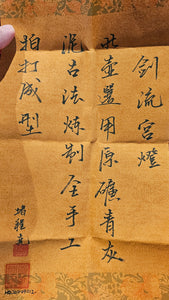 剑流宫燈
此壶選用原礦青灰
泥古法炼制全手工
拍打成型